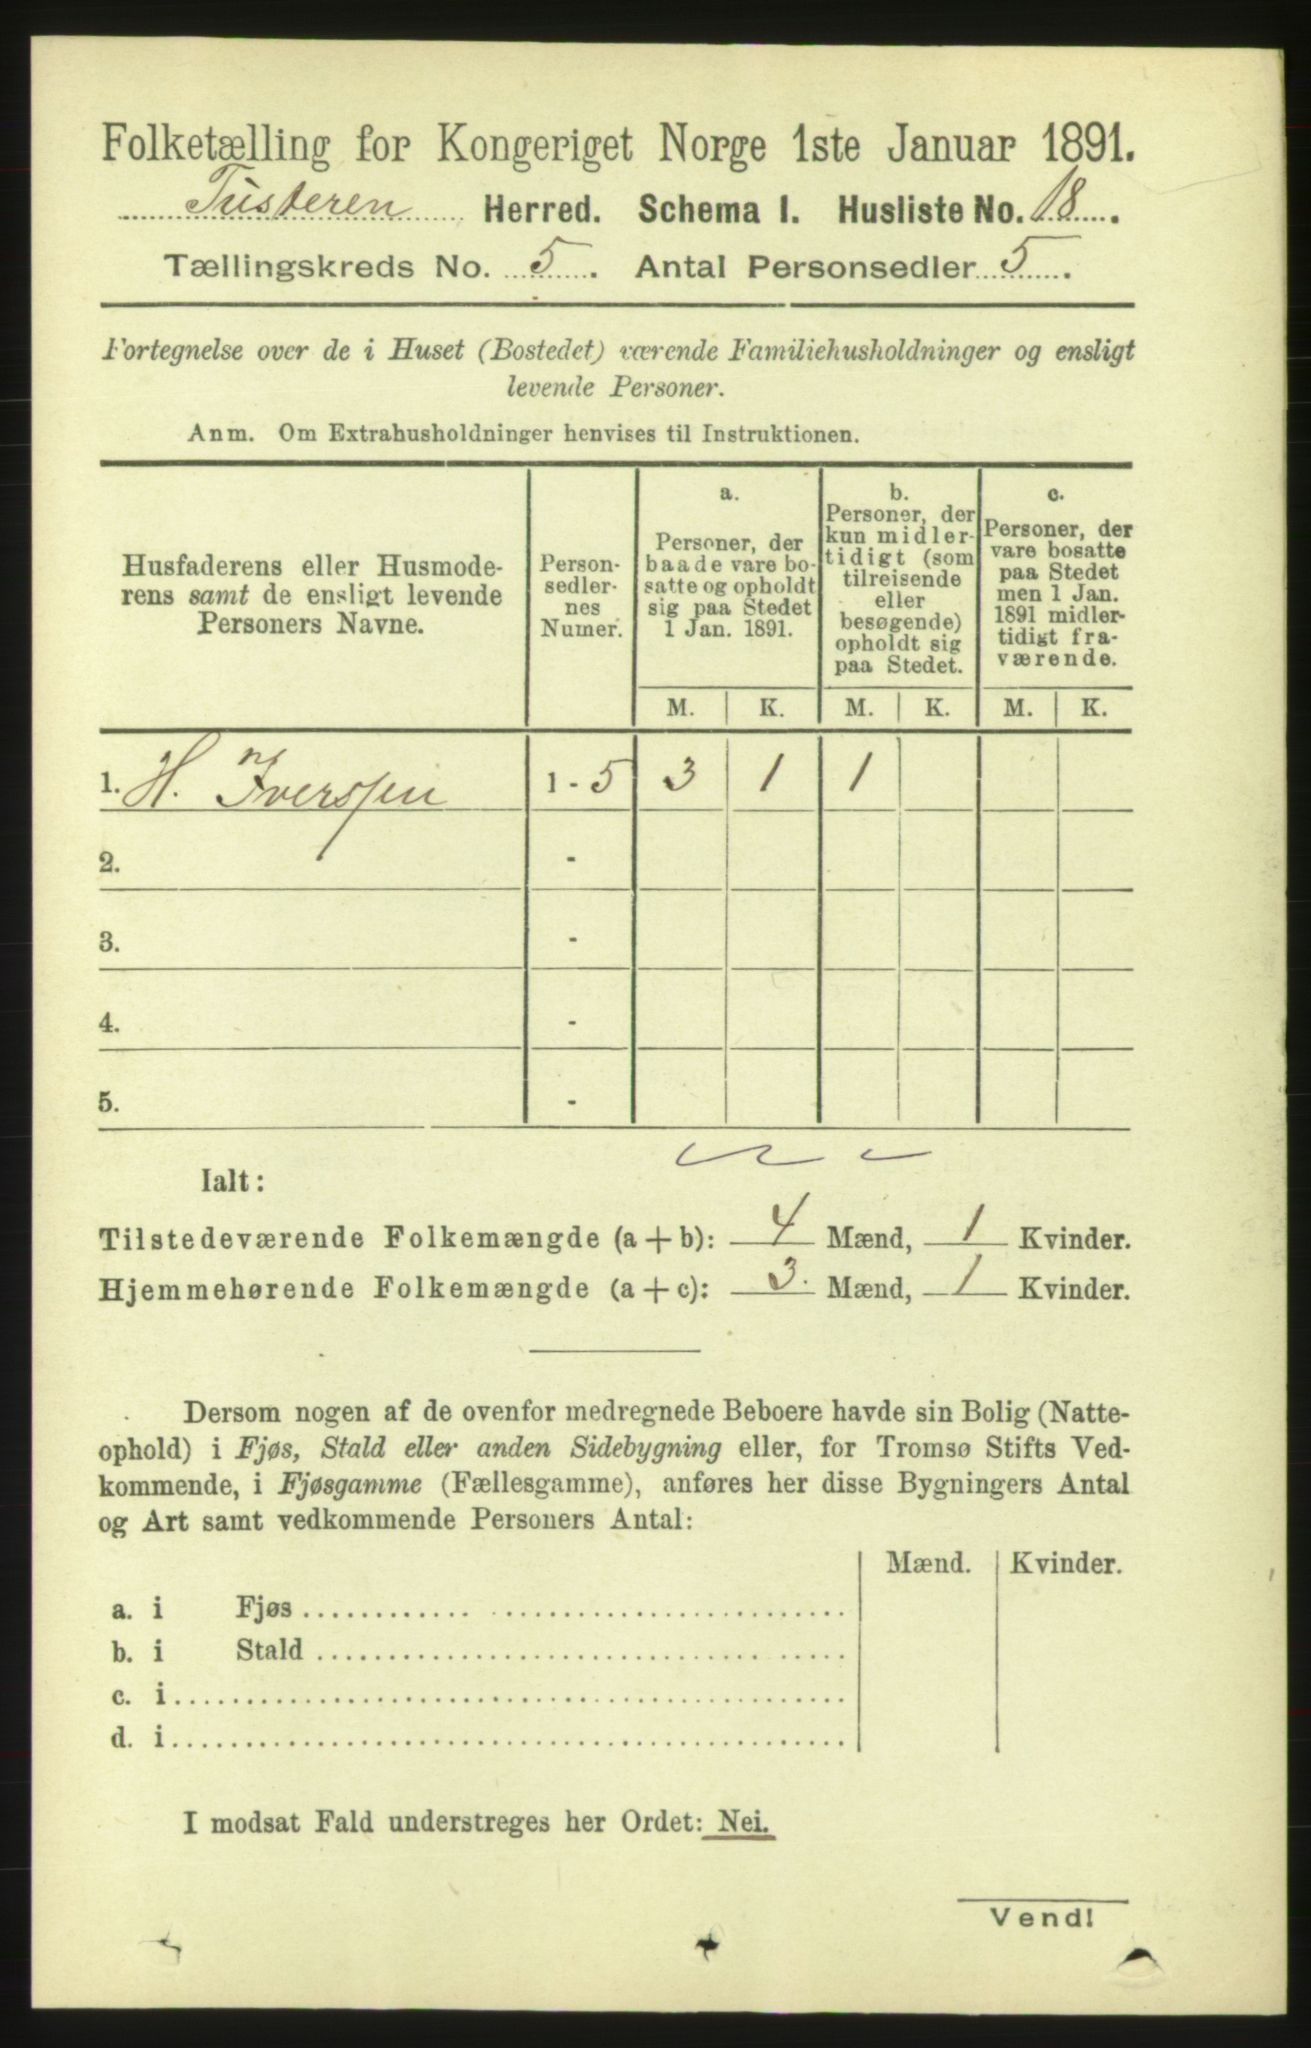 Folketælling for Kongeriget Norge 1ste Januar 1891.
Tusteren Herred. Schema I. Husliste No. 18.
Tællingskreds No. 5. Antal Personsedler 5.
Fortegnelse over de i Huset (Bostedet) værende Familiehusholdninger og ensligt
levende Personer.
Anm. Om Extrahusholdninger henvises til Instruktionen.
Husfaderens eller Husmode-
rens samt de ensligt levende
Personers Navne.
Person-
sedler-
nes
Numer.
a.
Personer, der
baade vare bo-
satte og opholdt
sig paa Stedet
1 Jan. 1891.
b.
Personer, der
kun midler-
tidigt (som
tilreisende
eller
besøgende)
opholdt sig
paa Stedet.
c.
Personer, der
vare bosatte
paa Stedet
men 1 Jan.
1891 midler-
tidigt fra-
værende.
M. K. M. K. M. K.
1. H. Iverssen 1 - 5 3 1 1
2. -
3. -
4. -
5. -
Ialt:
Tilstedeværende Folkemængde (a + b): 4 Mænd, 1 Kvinder.
Hjemmehørende Folkemængde (a + c): 3. Mænd, 1 Kvinder.
Dersom nogen af de ovenfor medregnede Beboere havde sin Bolig (Natte-
ophold) i Fjøs, Stald eller anden Sidebygning eller, for Tromsø Stifts Ved-
kommende, i Fjøsgamme (Fællesgamme), anføres her disse Bygningers Antal
og Art samt vedkommende Personers Antal:
Mænd. Kvinder.
a. i Fjøs
b. i Stald
c. i
d. i
I modsat Fald understreges her Ordet: Nei.
Vend!